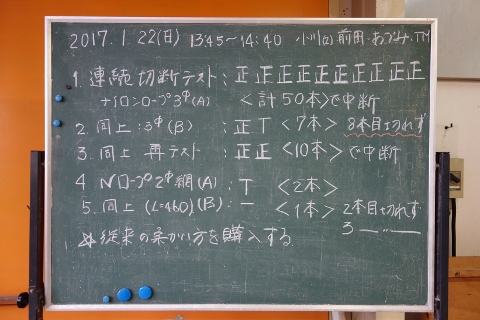 2017. 1. 22(日) 13:45～14:40 小川(2) 前田・あづみ・TM
1. 連続切断テスト: 正正正正正正正正正正
ナイロンロープ3φ(A) <計50本>で中断
2. 同上:3φ(B) : 正T <7本> 8本目切れず
3. 同上 再テスト : 正正 <10本>で中断
4 Nロープ2φ網(A): T <2本>
5. 同上 (L=460)(B): 一 <1本> 2本目切れず
3 ー〃ー
従来の柔かい方を購入する